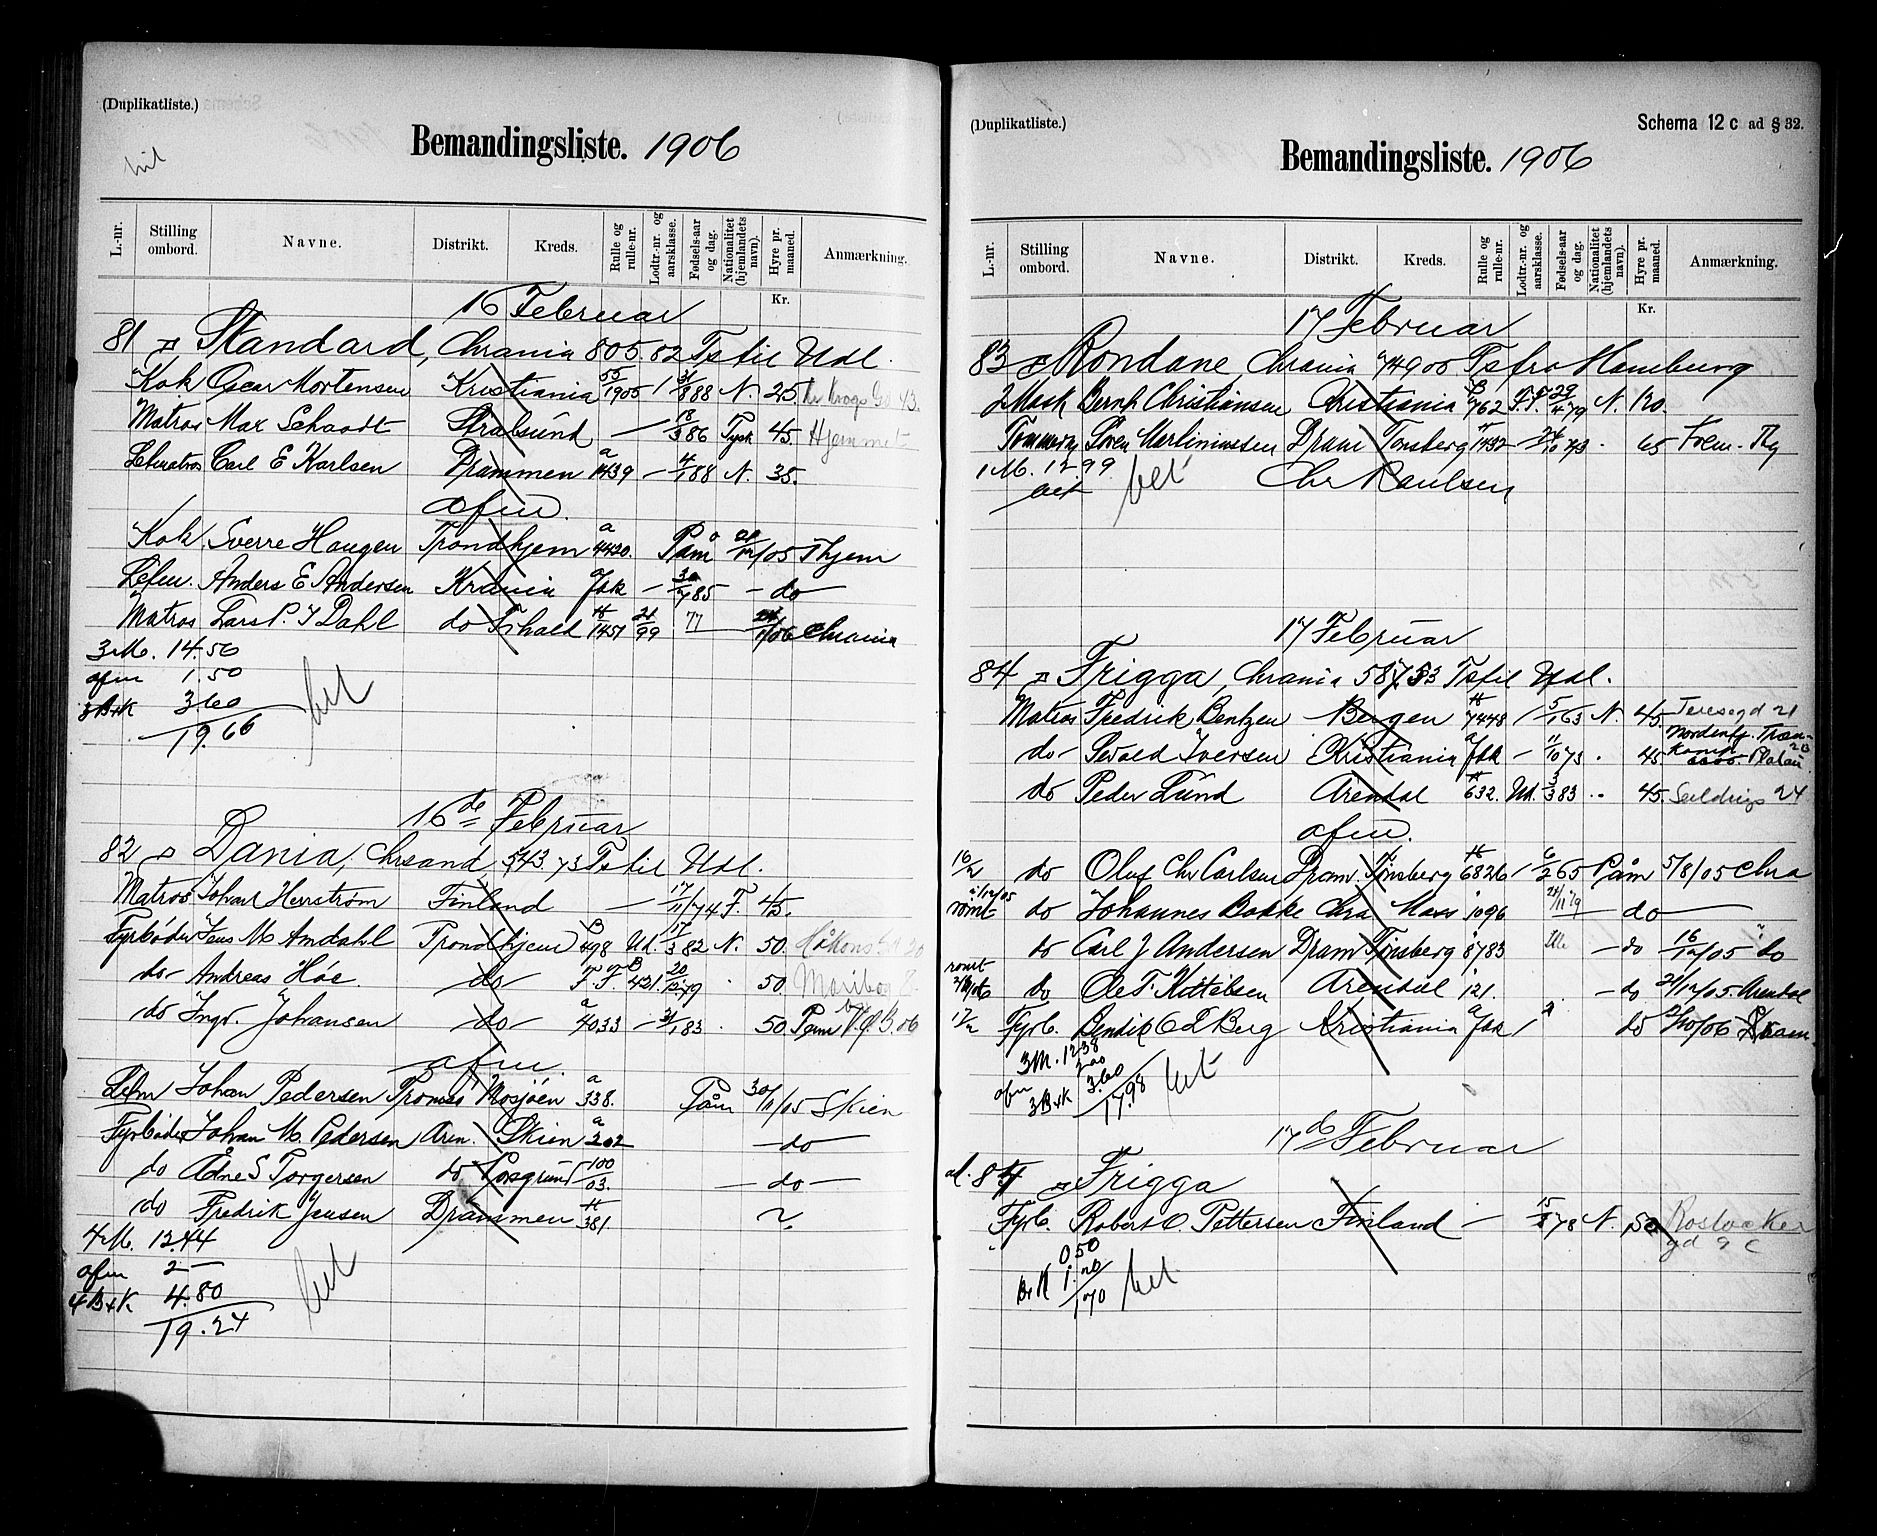 (Duplikatliste.)
Bemandingsliste. 1906
L.-nr. Stilling ombord. Navne. Distrikt. Kreds. Rulle og rulle-nr. Lodtr.-nr. og aarsklasse. Fødsels-aar og dag. Nationalitet (hjemlandets navn). Hyre pr. maaned. Anmærkning.
Kr.
16 Februar
81 Standard, Chrania 805.82 Ts til Udl.
Kok Oscar Mortensen Kristiania 55/1905 1 31/8 88 N. 25.
Matros Max Schaadt Stralsund — 18/3 86 Tysk 45. Hjemmet
Letmatros Carl E Karlsen Drammen a 1439 — 4/1 88 N. 35.
afm.
Kok Sverre Haugen Trondhjem a 4420. Påm /05 Thjem
Letm. Anders E Andersen Krania 30/7 85 — do —
Matros Lars P. I Dahl do Fr.hald 1457 21/99 77 — 1/06 Chrania
3 M. 14.56
afm 1.50
3 B+K 3.60
19.66
16de Februar
82 Dania, Chrsand, 543.73 Ts til Udl.
Matros Johan Herrström Finland — 17/11 74 F. 45.
Fyrbøder Jens M Amdahl Trondhjem B 498 Ud. 17/3 82 N. 50.
do Andreas Høe do F.F. B 421. 20/12 79 . 50
do Ingv. Johansen do a 4033 — 31/1 83 . 50.
afm.
Letm Johan Pedersen Tromsø Mosjøen a 338. Påm 30/11/05 Skien
Fyrbøder Johan M. Pedersen Aren. Skien a 202 — do —
do Ådne S Torgersen do Porsgrund 100/03. — do —
do Fredrik Jensen Drammen 381
4 M. 12.44
afm 2 —
4 B+K 4.80
19.24
(Duplikatliste.)
Schema 12 c ad § 32.
Bemandingsliste. 1906
L.-nr. Stilling ombord. Navne. Distrikt. Kreds. Rulle og rulle-nr. Lodtr.-nr. og aarsklasse. Fødsels-aar og dag. Nationalitet (hjemlandets navn). Hyre pr. maaned. Anmærkning.
Kr.
17 Februar
83 Rondane, Chrania 749 00 Ts fra Hamburg
2 Mask Bernh Christiansen Christiania B 762 F.F. 29/4 79 N. 120.
Tømmerm Søren Martiniussen Dram Tønsberg 1432 — 24/10 73 . 65
1 M. 12.99
Chr Paulsen
17 Februar
84 Frigga, Chrania 587.83 Ts til Udl.
Matros Fredrik Bentzen Bergen 7448 1 5/1 63 N. 45. Teresegd 21
do Sevald Iversen Kristiania — 11/10 73 . 45
do Peder Lund Arendal 632. Ud. 3/3 83 .. 45.
afm.
16/2 do Oluf Chr Carlsen Dram. Tønsberg 6826 1 6/2 65 Påm 5/8/05 Chra
rømt do Johannes Bakke Chra Moss 1096 — do —
do Carl J Andersen Dram Tønsberg 8783 — do 16/12/05 do
rømt do Ole F. Kittelsen Arendal 121. — do 21/12/05. Arendal
17/2 Fyrb. Bendik O L Berg Kristiania do 2/10/06
3 M. 12.38
afm 2.00
3 B+K 3.60
17.98
17de Februar
84 Frigga
Fyrb. Robert O. Pettersen Finland — 78 N. 50 Rostocker
gd 9 c
0.50
B+K 1.20
1.70